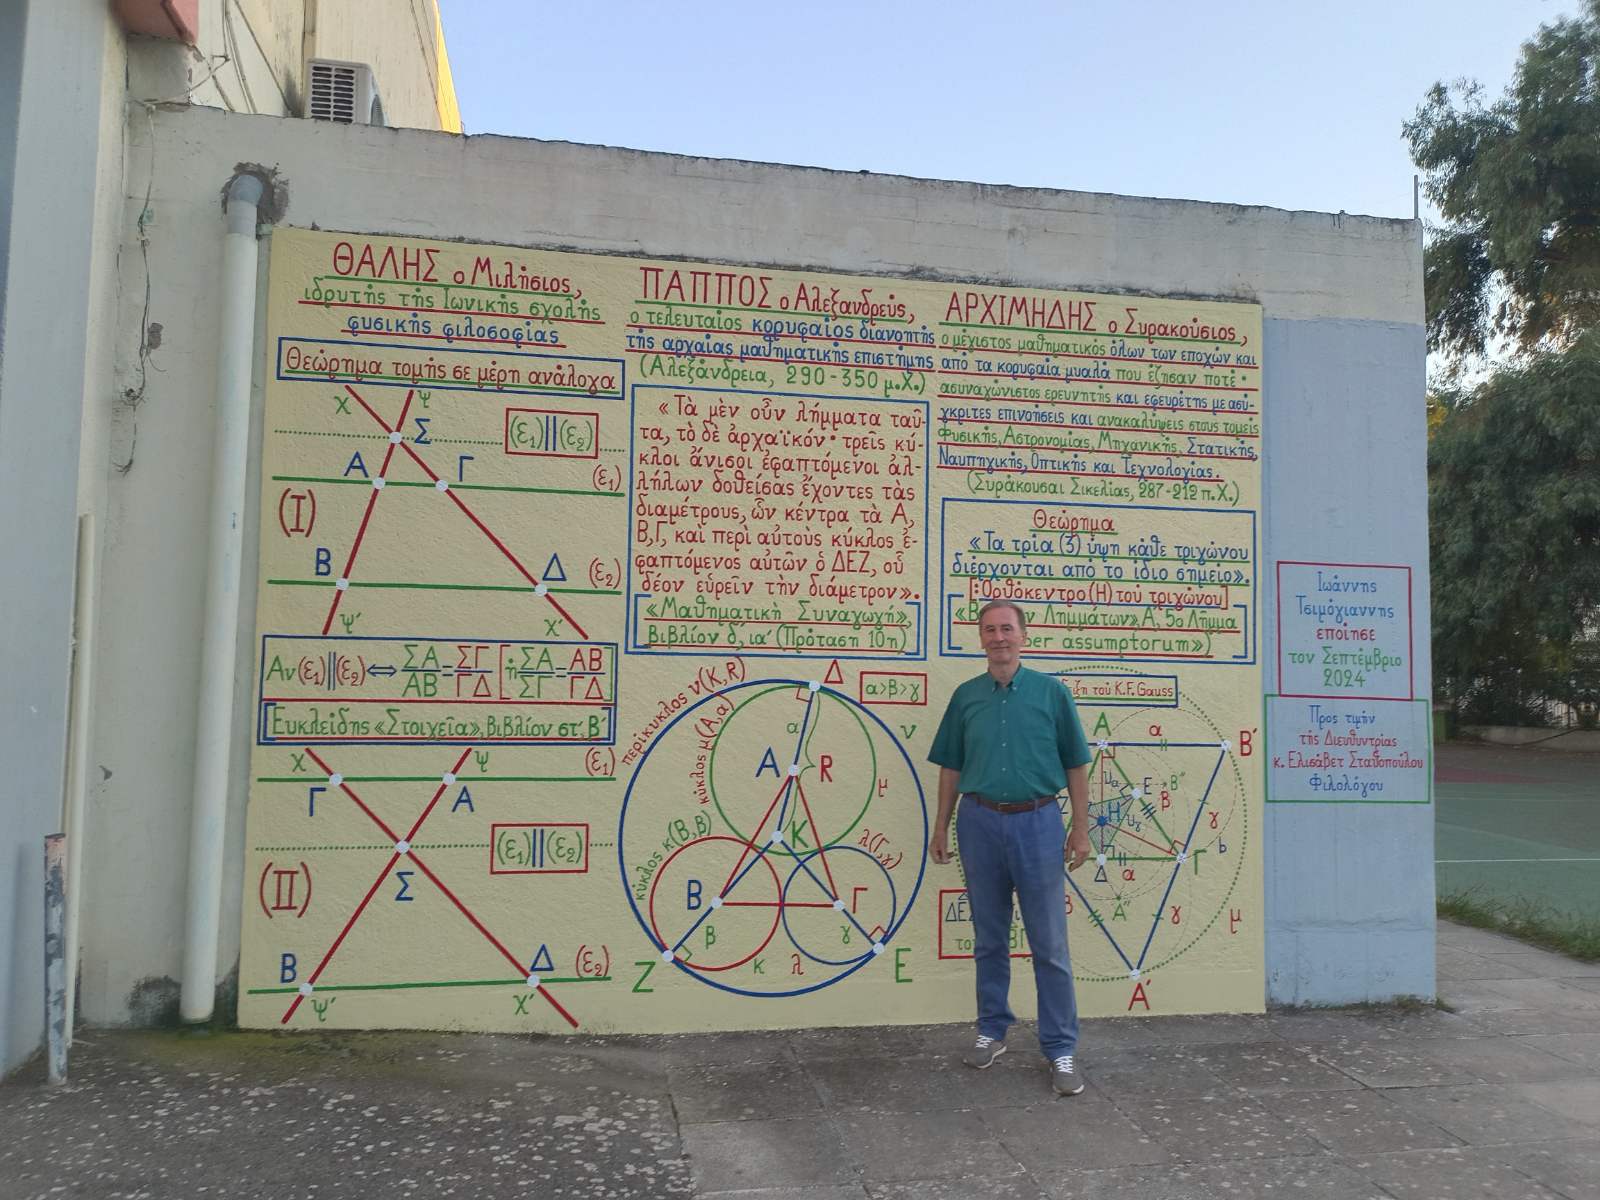 ΘΑΛΗΣ ο Μιλήσιος,
ιδρυτής της Ιωνικής σχολής
φυσικής φιλοσοφίας
Θεώρημα τομής σε μέρη ανάλογα
χ ψ
Σ (ε₁)||(ε₂)
Α Γ (ε₁)
(Ι)
Β Δ (ε₂)
ψ′ χ′
Αν (ε₁)||(ε₂) ⇔ ΣΑ/ΑΒ = ΣΓ/ΓΔ [ή ΣΑ/ΣΓ = ΑΒ/ΓΔ]
[Ευκλείδης «Στοιχεῖα», βιβλίον στ′, Β′]
χ ψ (ε₁)
Γ Α
(ε₁)||(ε₂)
(ΙΙ) Σ
Β Δ (ε₂)
ψ′ χ′
ΠΑΠΠΟΣ ο Αλεξανδρεύς,
ο τελευταίος κορυφαίος διανοητής
της αρχαίας μαθηματικής επιστήμης
(Αλεξάνδρεια, 290-350 μ.Χ.)
«Τὰ μὲν οὖν λήμματα ταῦ-
τα, τὸ δὲ ἀρχαϊκόν· τρεῖς κύ-
κλοι ἄνισοι ἐφαπτόμενοι ἀλ-
λήλων δοθείσας ἔχοντες τὰς
διαμέτρους, ὧν κέντρα τὰ Α,
Β,Γ, καὶ περὶ αὐτοὺς κύκλος ἐ-
φαπτόμενος αὐτῶν ὁ ΔΕΖ, οὗ
δέον εὑρεῖν τὴν διάμετρον».
«Μαθηματικὴ Συναγωγὴ»,
βιβλίον δ′, ια′ (Πρόταση 10η)
περίκυκλος ν(Κ,R) Δ α>β>γ
κύκλος μ(Α,α) α ν
Α R μ
κύκλος κ(Β,β) Κ λ(Γ,γ)
Β Γ
β γ
Ζ κ λ Ε
ΑΡΧΙΜΗΔΗΣ ο Συρακούσιος,
ο μέγιστος μαθηματικός όλων των εποχών και
από τα κορυφαία μυαλά που έζησαν ποτέ·
ασυναγώνιστος ερευνητής και εφευρέτης με ασύ-
γκριτες επινοήσεις και ανακαλύψεις στους τομείς
Φυσικής, Αστρονομίας, Μηχανικής, Στατικής,
Ναυπηγικής, Οπτικής και Τεχνολογίας.
(Συράκουσαι Σικελίας, 287-212 π.Χ.)
Θεώρημα
«Τα τρία (3) ύψη κάθε τριγώνου
διέρχονται από το ίδιο σημείο».
[:Ορθόκεντρο (Η) τού τριγώνου]
Λημμάτων», Α, 5ο Λήμμα
assumptorum»)
τού K.F. Gauss
Α α Β′
υα Ε Β″
Η υγ β γ b
Δ α Γ
Α″ γ μ
Α′
Ιωάννης
Τσιμόχιαννης
εποίησε
τον Σεπτέμβριο
2024
Προς τιμήν
τής Διευθυντρίας
κ. Ελισάβετ Σταθοπούλου
Φιλολόγου